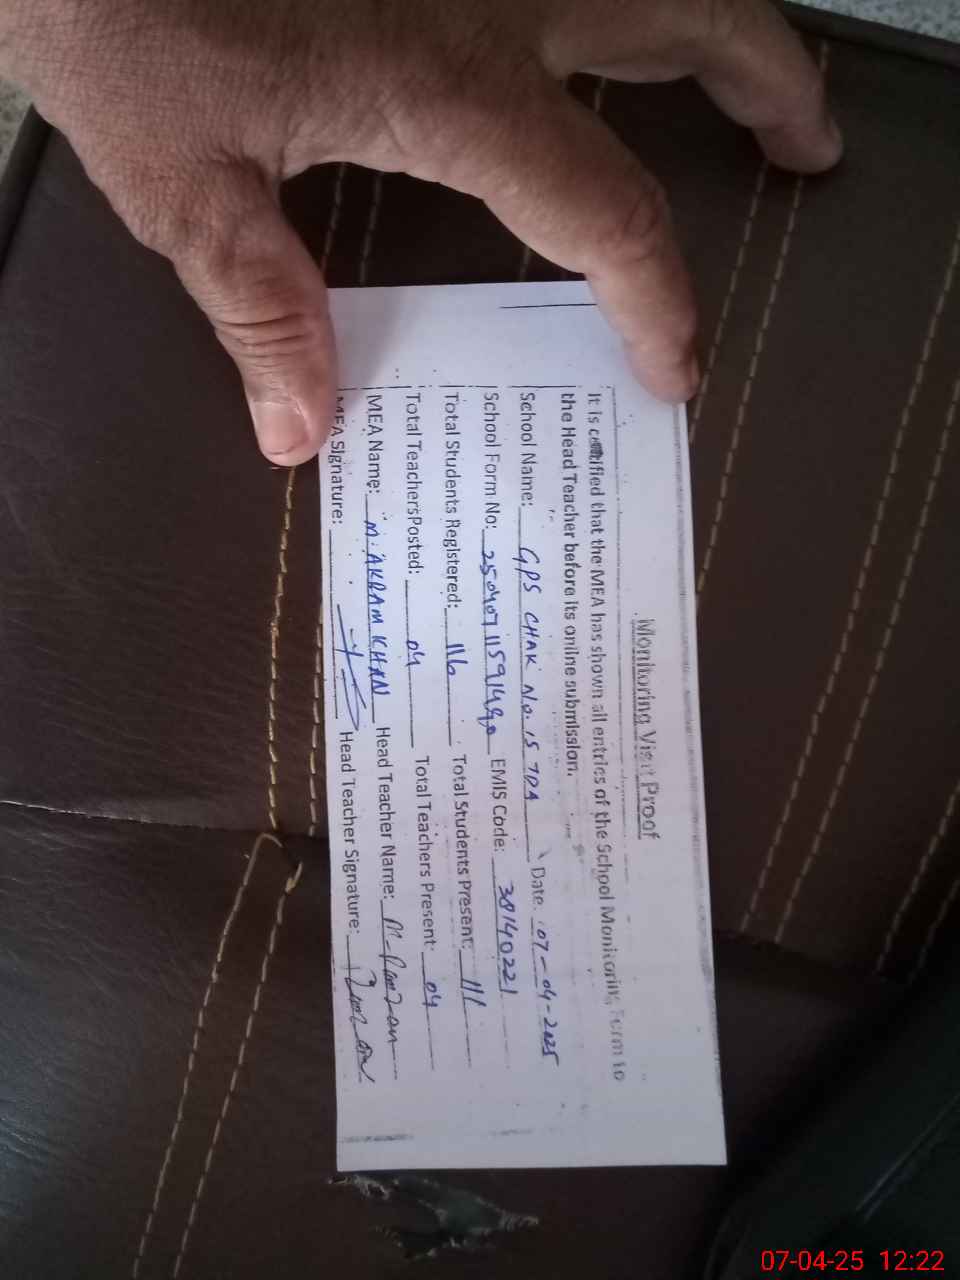 Monitoring Visit Proof
It is certified that the MEA has shown all entries of the School Monitoring Form to
the Head Teacher before its online submission.
School Name: GPS CHAK No. 15 TDA Date. 07-04-2025
School Form No: EMIS Code: 38140221
Total Students Registered: 116 Total Students Present: 111
Total Teachers Posted: 04 Total Teachers Present: 04
MEA Name: M. AKRAM KHAN Head Teacher Name: M. Ramzan
MEA Signature: Head Teacher Signature:
07-04-25 12:22